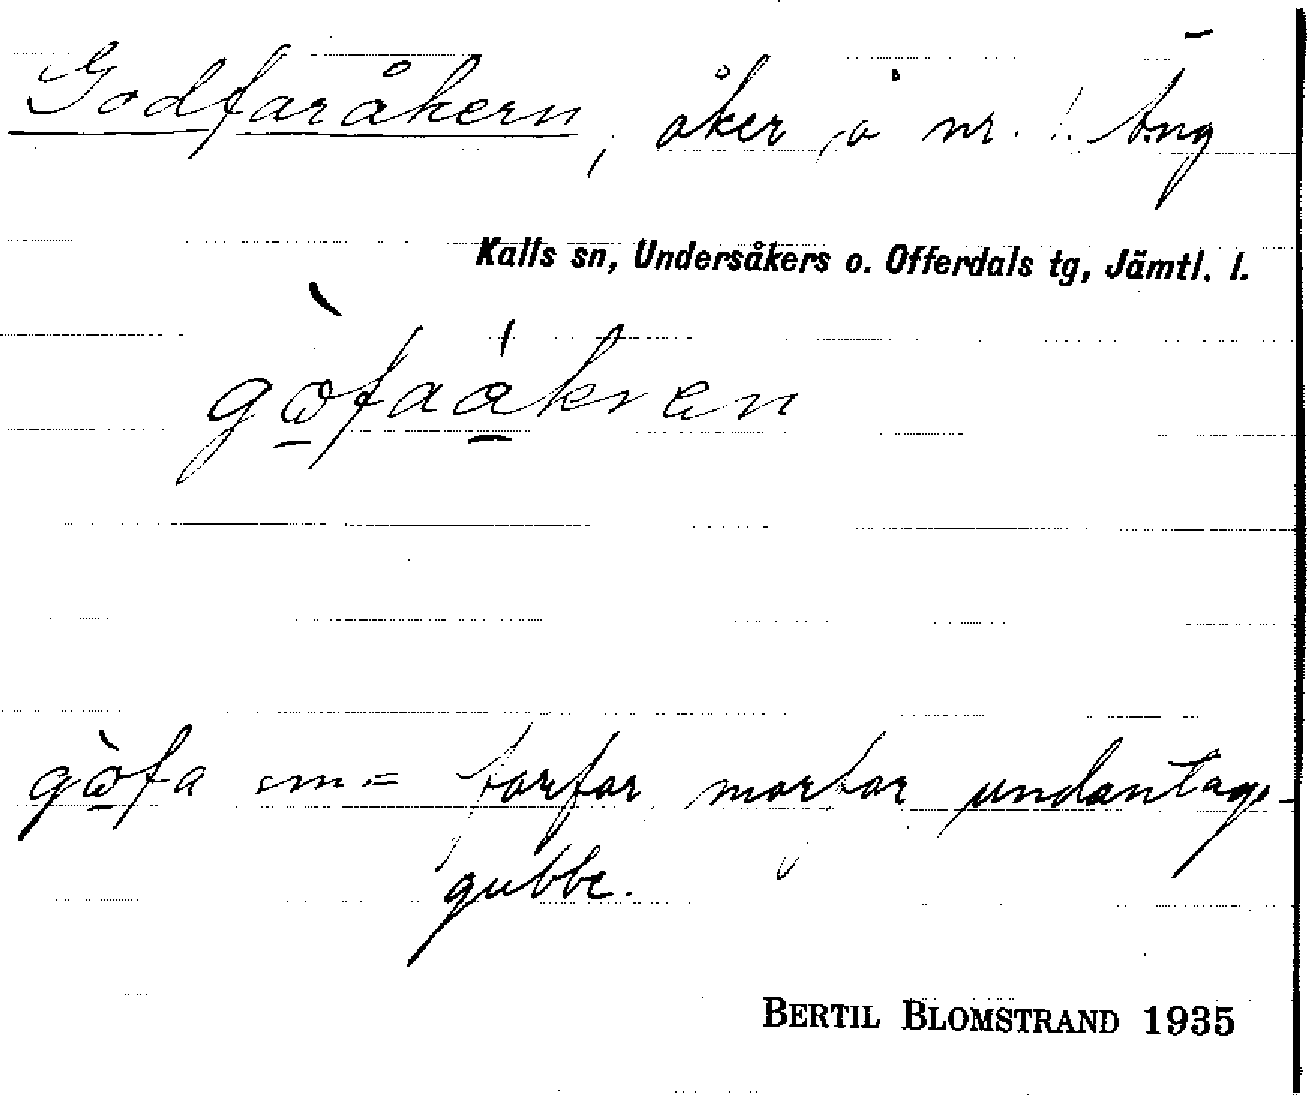 Godfaråkern, åker å nr. 1. Äng
Kalls sn, Undersåkers o. Offerdals tg, Jämtl. l.
gòfaákren
gòfa m = farfar morfar undantags-
gubbe.
BERTIL BLOMSTRAND 1935